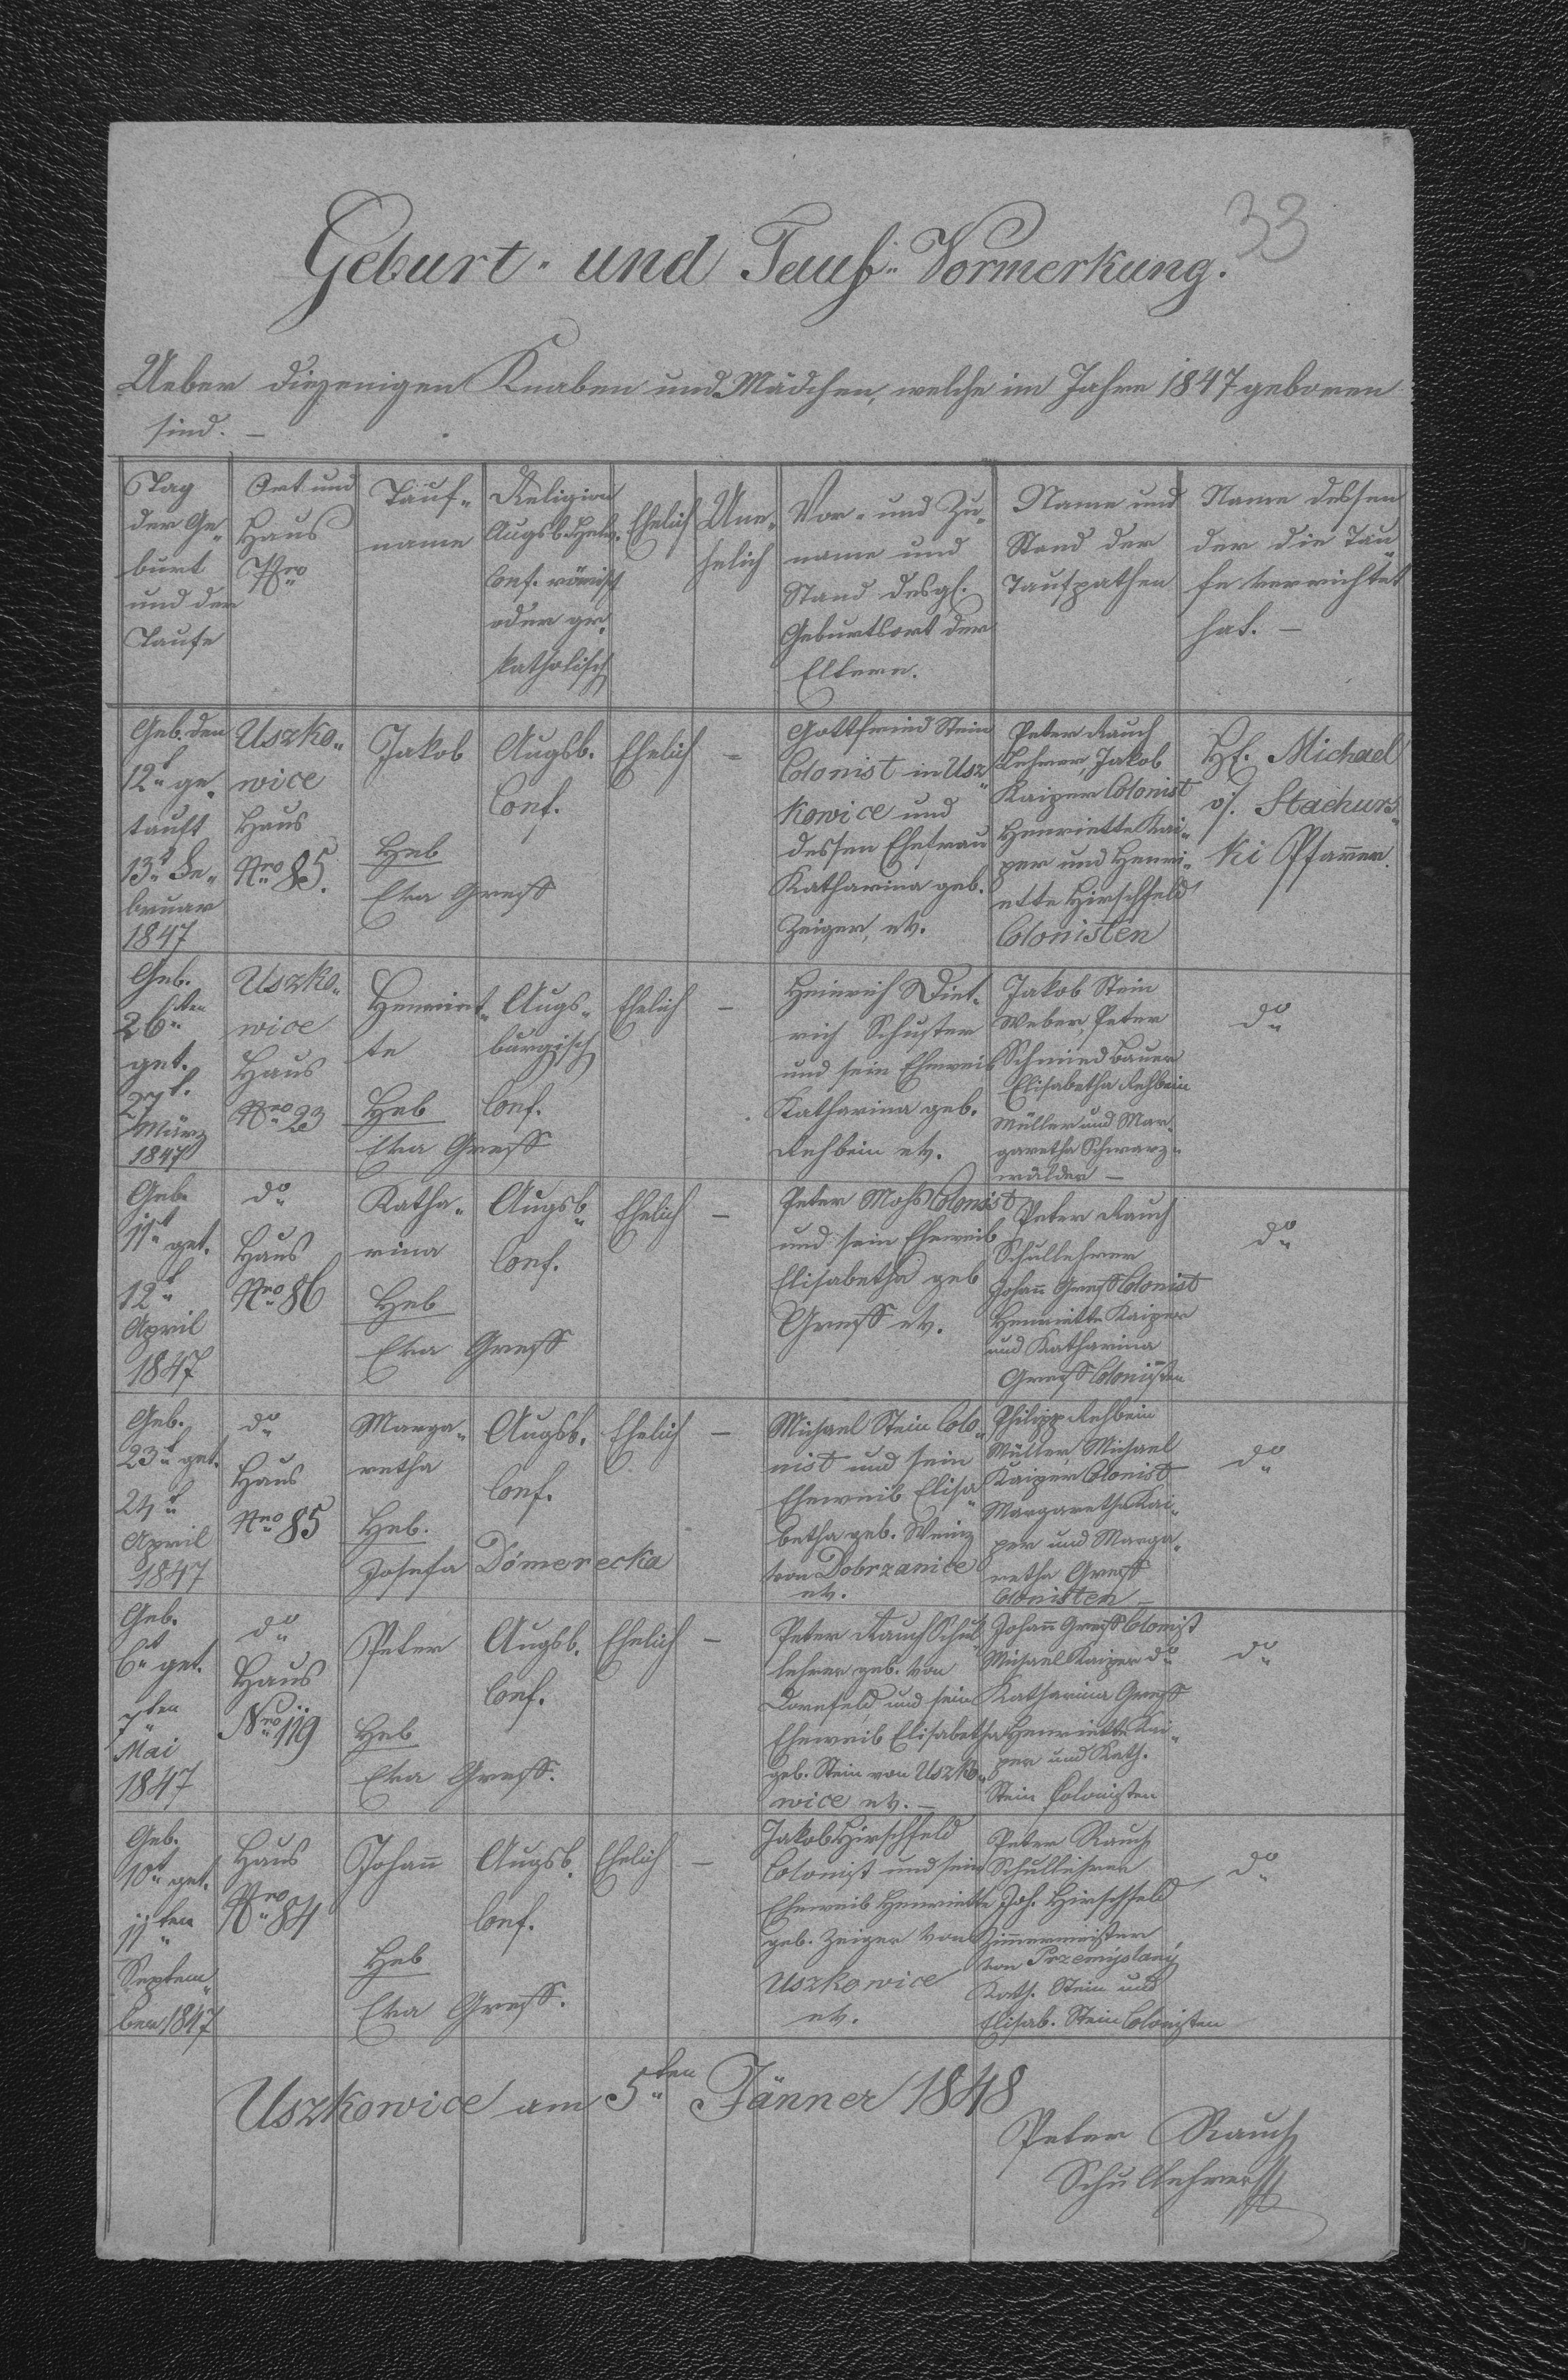 33
Geburt- und Tauf-Vormerkung.
Ueber diejenigen Knaben und Mädchen, welche im Jahre 1847 geboren
sind. —
Tag
der Ge-
burt
und der
Taufe
Ort und
Haus
Nro
Tauf-
name
Religion
Augsb. Helv.
Conf. römisch
oder gr.
katholisch
Ehelich
Une-
helich
Vor- und Zu-
name und
Stand desgl.
Geburtsort der
Eltern.
Name und
Stand der
Taufpathen
Name dessen
der die Tau-
fe verrichtet
hat. —
Geb. den
12t ge-
tauft
13t Fe-
bruar
1847
Uszko-
wice
Haus
Nro 85.
Jakob
Heb
Eva Gress
Augsb.
Conf.
Ehelich
–
Gottfried Stein
Colonist in Usz-
kowice und
dessen Ehefrau
Katharina geb.
Zeiger, ev.
Peter Rauch
Lehrer, Jakob
Kaiper Colonist
Henriette Kai-
per und Henri-
ette Hirschfeld
Colonisten
Michael
v. Stachurs-
ki Pfarrer.
Geb.
26ten
get.
27t.
März
1847
Uszko-
wice
Haus
Nro 23
Henriet-
te
Heb
Eva Gress
Augs-
burgisch
Conf.
Ehelich
–
Heinrich Diet-
rich Schuster
und sein Eheweib
Katharina geb.
Rehbein ev.
Jakob Stein
Weber, Peter
Schmied Bauer
Elisabetha Rehbein
Müller und Mar-
garetha Schwarz-
wälder —
do
Geb.
11t get.
12t
April
1847
do
Haus
Nro 86
Katha-
rina
Heb
Eva Gress
Augsb.
Conf.
Ehelich
–
Peter Mohs Colonist
und sein Eheweib
Elisabetha geb
Gress ev.
Peter Rauch
Schullehrer
Johann Gress Colonist
Henriette Kaiper
und Katharina
Gress Colonisten
do
Geb.
23t get.
24t
April
1847
do
Haus
Nro 85
Marga-
retha
Heb.
Josefa Dömerecka
Augsb.
Conf.
Ehelich
–
Michael Stein Colo-
nist und sein
Eheweib Elisa-
betha geb. Weinz
von Dobrzanice
ev.
Philipp Rehbein
Müller, Michael
Kaiper Colonist
Margaretha Kai-
per und Marga-
retha Gress
Colonisten —
do
Geb.
6t get.
7ten
Mai
1847
do
Haus
Nro 119
Peter
Heb
Eva Gress.
Augsb.
Conf.
Ehelich
–
Peter Rauch Schul-
lehrer geb. von
Dornfeld, und sein
Eheweib Elisabetha
geb. Stein von Uszko-
wice ev. —
Johann Gress Colonist
Michael Kaiper do
Katharina Gress
Henriette Kai-
per und Kath.
Stein Colonisten
do
Geb.
10t get.
11ten
Septem-
ber 1847
Haus
Nro 84
Johann
Heb
Eva Gress.
Augsb.
Conf.
Ehelich
–
Jakob Hirschfeld
Colonist und sein
Eheweib Henriette
geb. Zeiger von
Uszkowice
ev.
Peter Rauch
Schullehrer
Joh. Hirschfeld
Zimmermeister
von Przemyslany
Kath. Stein und
Elisab. Stein Colonisten
do
Uszkowice am 5ten Jänner 1848
Peter Rauch
Schullehrer